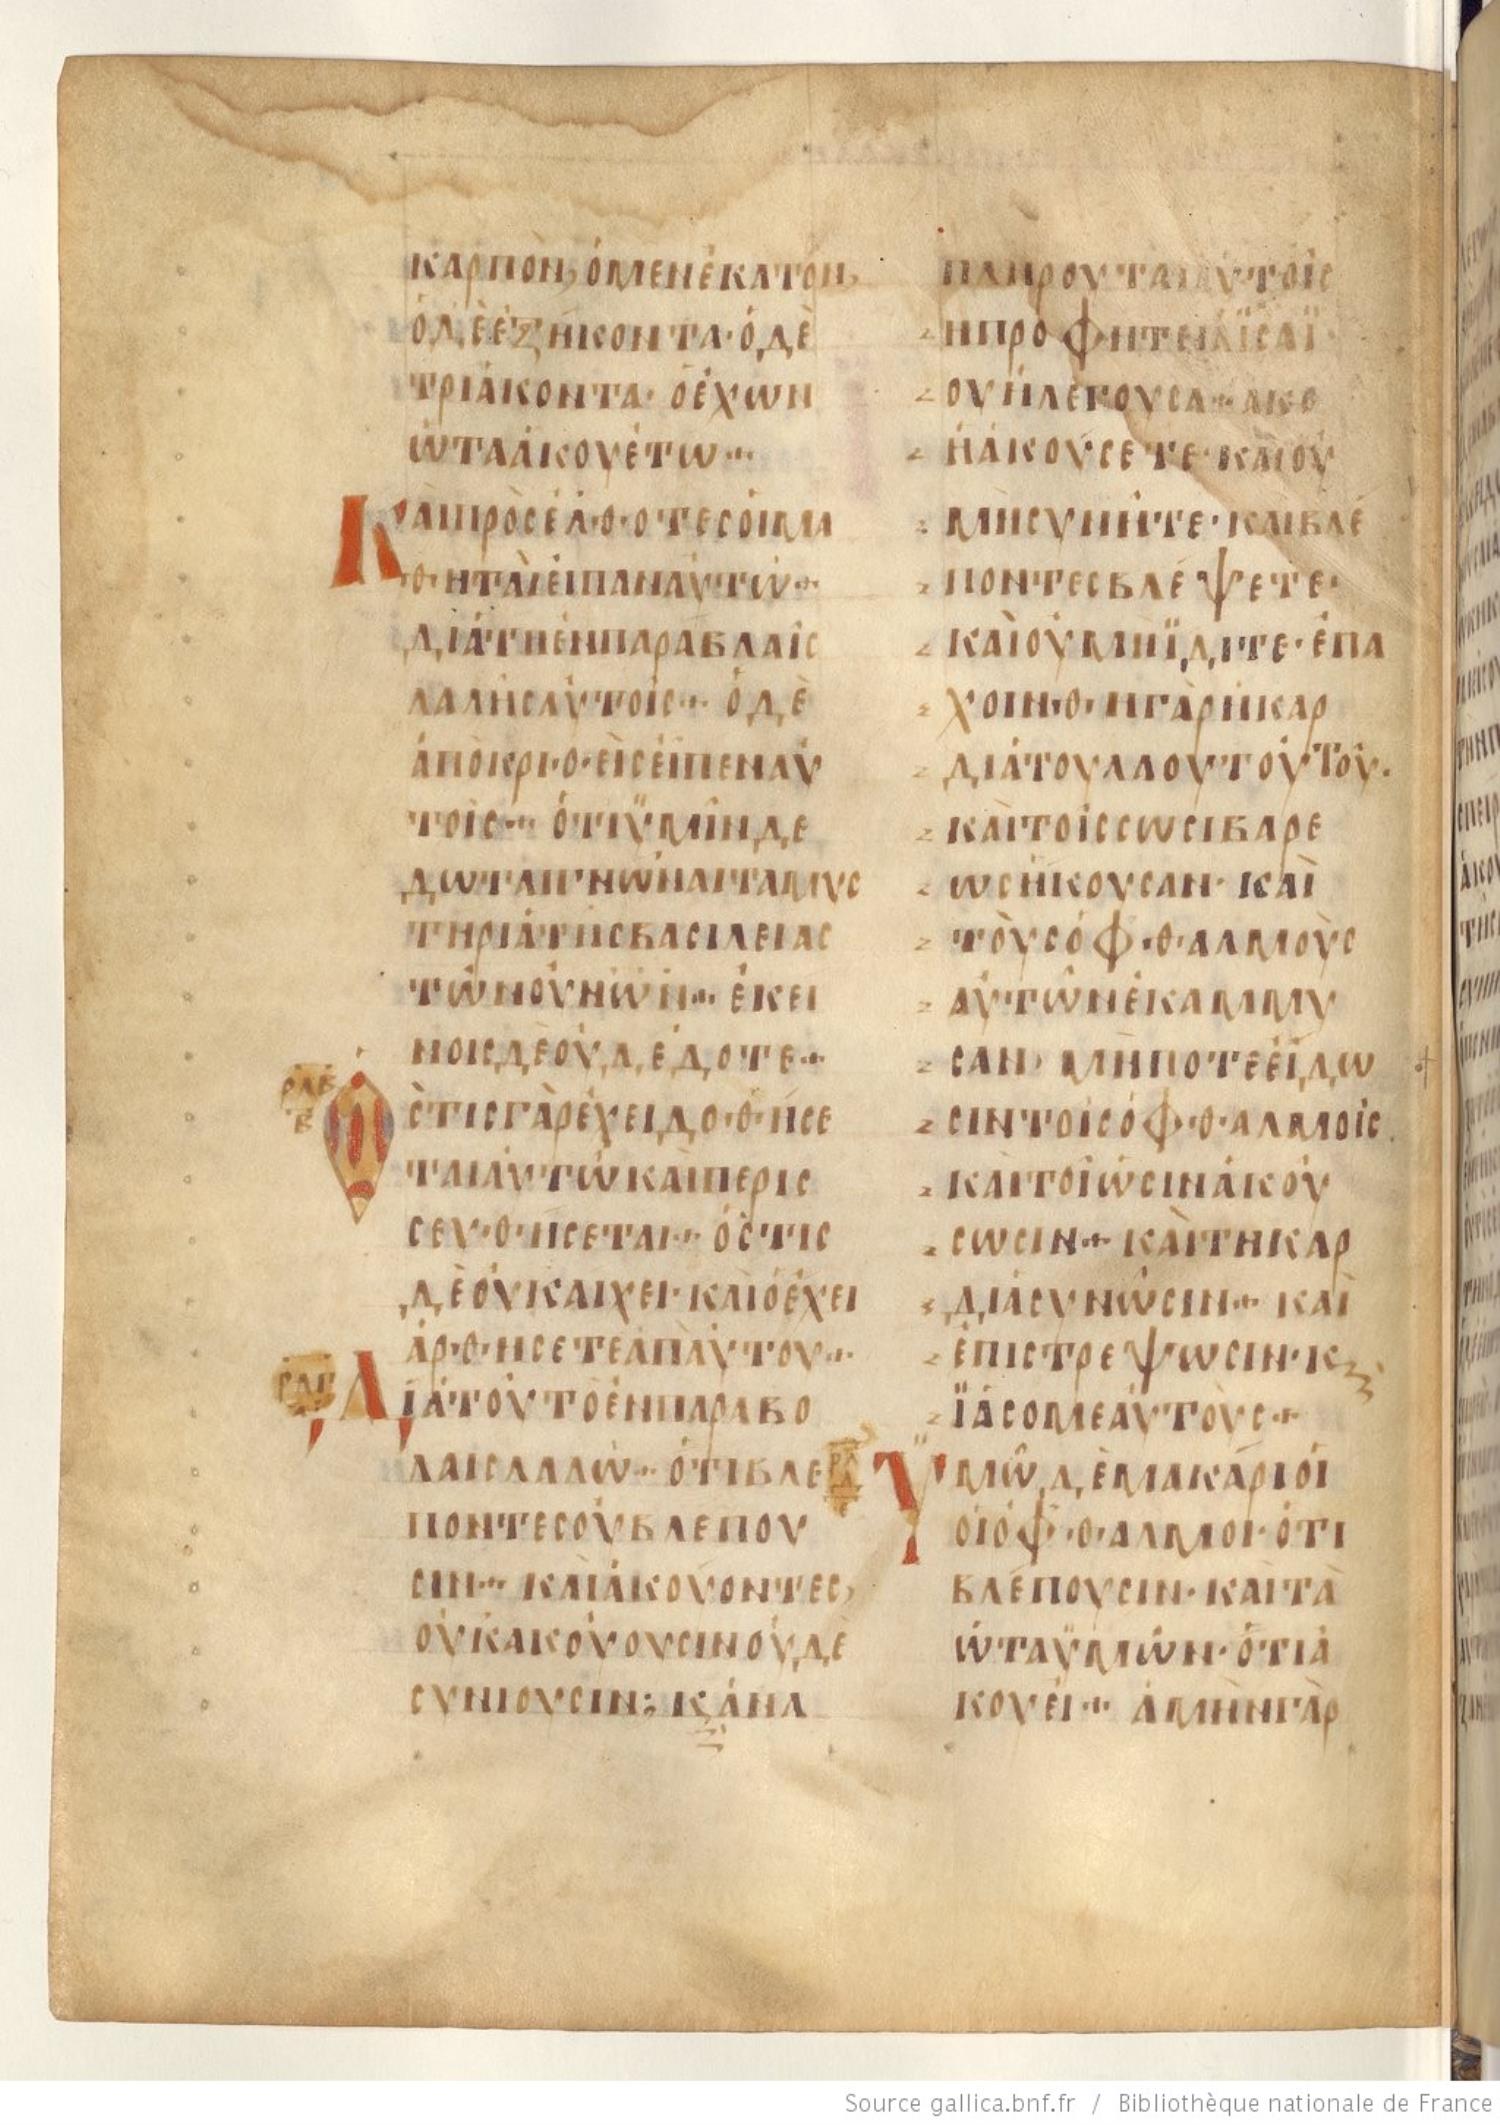 ΚΑΡΠῸΝ, Ὁ ΜΕΝ ἙΚΑΤΟΝ,
Ὁ ΔΕ ἙΞΉΚΟΝΤΑ· Ὁ ΔῈ
ΤΡΙΆΚΟΝΤΑ· Ὁ ἜΧΩΝ
ὨΤΑ ἈΚΟΥΈΤΩ·:·
ΚΑῚ ΠΡΟΣΕΛΘΟΤΕΣ ΟἹ ΜΑ
ΘΗΤΑῚ ΕἸΠΑΝ ΑΥ̓ΤΩ·:·
ΔΙΆ ΤΗ ἘΝ ΠΑΡΑΒΛΑῖΣ
ΛΑΛΗΣ ΑΥ̓ΤΟΙΣ·:· Ὁ ΔῈ
ἈΠΟΚΡΙΘΕῚΣ ΕἸΠΕΝ ΑΥ̓
ΤΟΙΣ·:· ὉΤΙ ΫΜΙΝ ΔΕ
ΔΩΤΑΙ ΓΝΩΝΑΙ ΤΑ ΜΥΣ
ΤΗΡΙΑ ΤΗΣ ΒΑΣΙΛΕΙΑΣ
ΤΩΝ ΟΥΝΩΝ·:· ἘΚΕΙ
ΝΟΙΣ ΔῈ ΟΥ̓ ΔΕΔΟΤΕ·:·
ὉΣΤΙΣ ΓᾺΡ ἜΧΕΙ ΔΟΘΗΣΕ
ΤΑΙ ΑΥ̓ΤΩ ΚΑῚ ΠΕΡΙΣ
ΣΕΥΘΗΣΕΤΑΙ·:· ὉΣΤΙΣ
ΔῈ ΟΥ̓Κ ΑΙΧΕΙ· ΚΑῚ Ὁ ἜΧΕΙ
ἈΡΘΗΣΕΤΕ ἈΠ ΑΥ̓ΤΟΥ·:·
ΡΛΒ
Β
ΡΛΓ
ΔΙΑ ΤΟΥΤΟ ἘΝ ΠΑΡΑΒΟ
ΛΑΙΣ ΛΑΛΩ·:· ὉΤΙ ΒΛΕ
ΠΟΝΤΕΣ ΟΥ̓ ΒΛΕΠΟΥ
ΣΙΝ·:· ΚΑΙ ἈΚΟΥΟΝΤΕΣ,
ΟΥ̓Κ ΑΚΟΥΟΥΣΙΝ ΟΥ̓ΔῈ
ΣΥΝΙΟΥΣΙΝ; Κ ἈΝΑ
ΠΛΗΡΟΥΤΑΙ ΑΥ̓ΤΟΙΣ
Η ΠΡΟΦΗΤΕΙΑ ΪΣΑΪ
ΟΥ Ἡ ΛΕΓΟΥΣΑ·:· ΑΚΟ
Ἠ ἈΚΟΥΣΕΤΕ· ΚΑΙ ΟΥ̓
ΜΗ ΣΥΝΗΤΕ· ΚΑΙ ΒΛΕ
ΠΟΝΤΕΣ ΒΛΕΨΕΤΕ·
ΚΑῚ ΟΥ̓ ΜΗ ΪΔΙΤΕ· ἘΠΑ
ΧΟΙΝΘΗ ΓᾺΡ Ἡ ΚΑΡ
ΔΙΑ ΤΟΥ ΛΑΟΥ ΤΟΥΤΟΥ.
ΚΑῚ ΤΟΙΣ ΣΩΣΙ ΒΑΡΕ
ΩΣ ἨΚΟΥΣΑΝ· ΚΑῚ
ΤΟῪΣ ὈΦΘΑΛΜΟῪΣ
ΑΥ̓ΤΩΝ ἘΚΑΜΜΥ
ΣΑΝ, ΜΗΠΟΤΕ ΕΪΔΩ
ΣΙΝ ΤΟΙΣ ὈΦΘΑΛΜΟΙΣ
ΚΑῚ ΤΟΙ ὨΣΙΝ ἈΚΟΥ
ΣΩΣΙΝ·:· ΚΑῚ ΤΗ ΚΑΡ
ΔΙΑ ΣΥΝΩΣΙΝ·:· ΚΑῚ
ἘΠΙΣΤΡΕΨΩΣΙΝ· Κ
ΪΑΣΟΜΕ ΑΥ̓ΤΟΥΣ·:·
ΡΛΔ
Ε
ΫΜΩ ΔῈ ΜΑΚΑΡΙΟΙ
ΟἹ ὈΦΘΑΛΜΟΙ· ὉΤΙ
ΒΛΕΠΟΥΣΙΝ· ΚΑΙ ΤᾺ
ὨΤΑ ΫΜΩΝ· ὉΤΙ Ἀ
ΚΟΥΕΙ·:· ἈΜῊΝ ΓᾺΡ
Source gallica.bnf.fr / Bibliothèque nationale de France